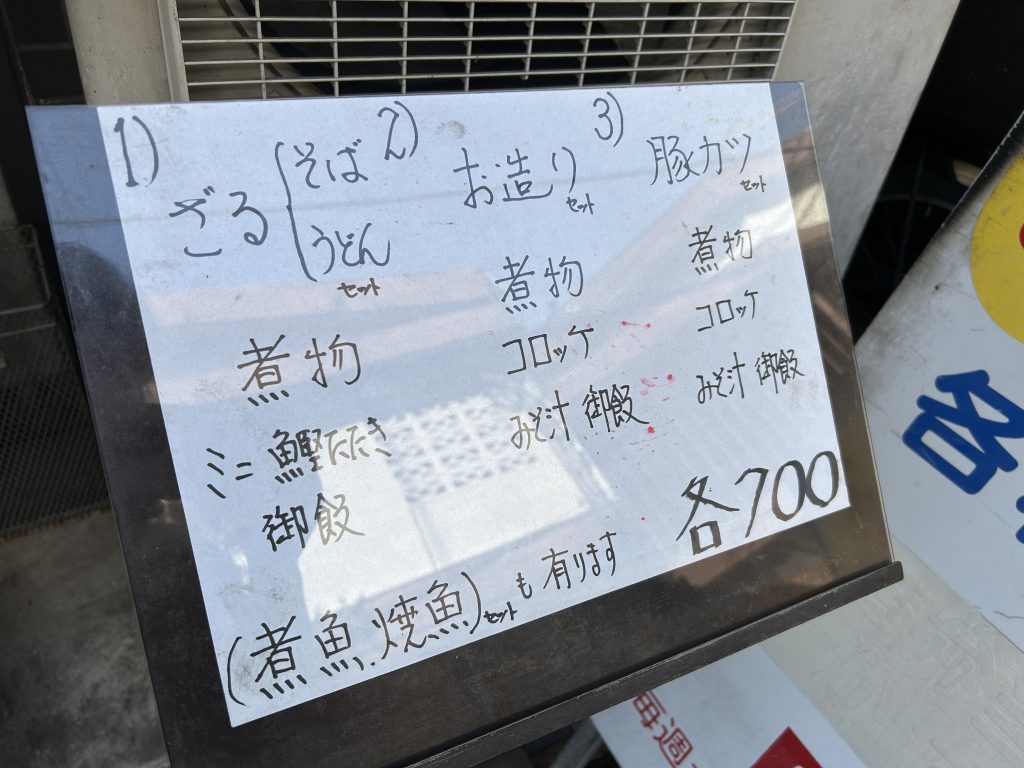 1)
ざる
そば
うどん
セット
煮物
ミニ 鰹たたき
御飯
2)
お造り
セット
煮物
コロッケ
みそ汁 御飯
3)
豚カツ
セット
煮物
コロッケ
みそ汁 御飯
各700
(煮魚、焼魚)セットも有ります
各
毎週